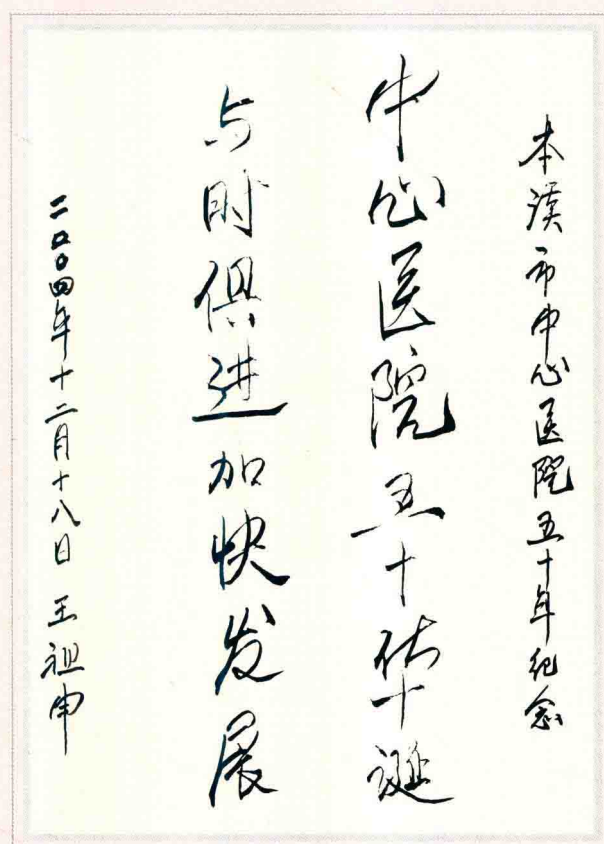 本溪市中心医院五十年纪念
中心医院五十华诞
与时俱进加快发展
二〇〇四年十二月十八日 王祖申